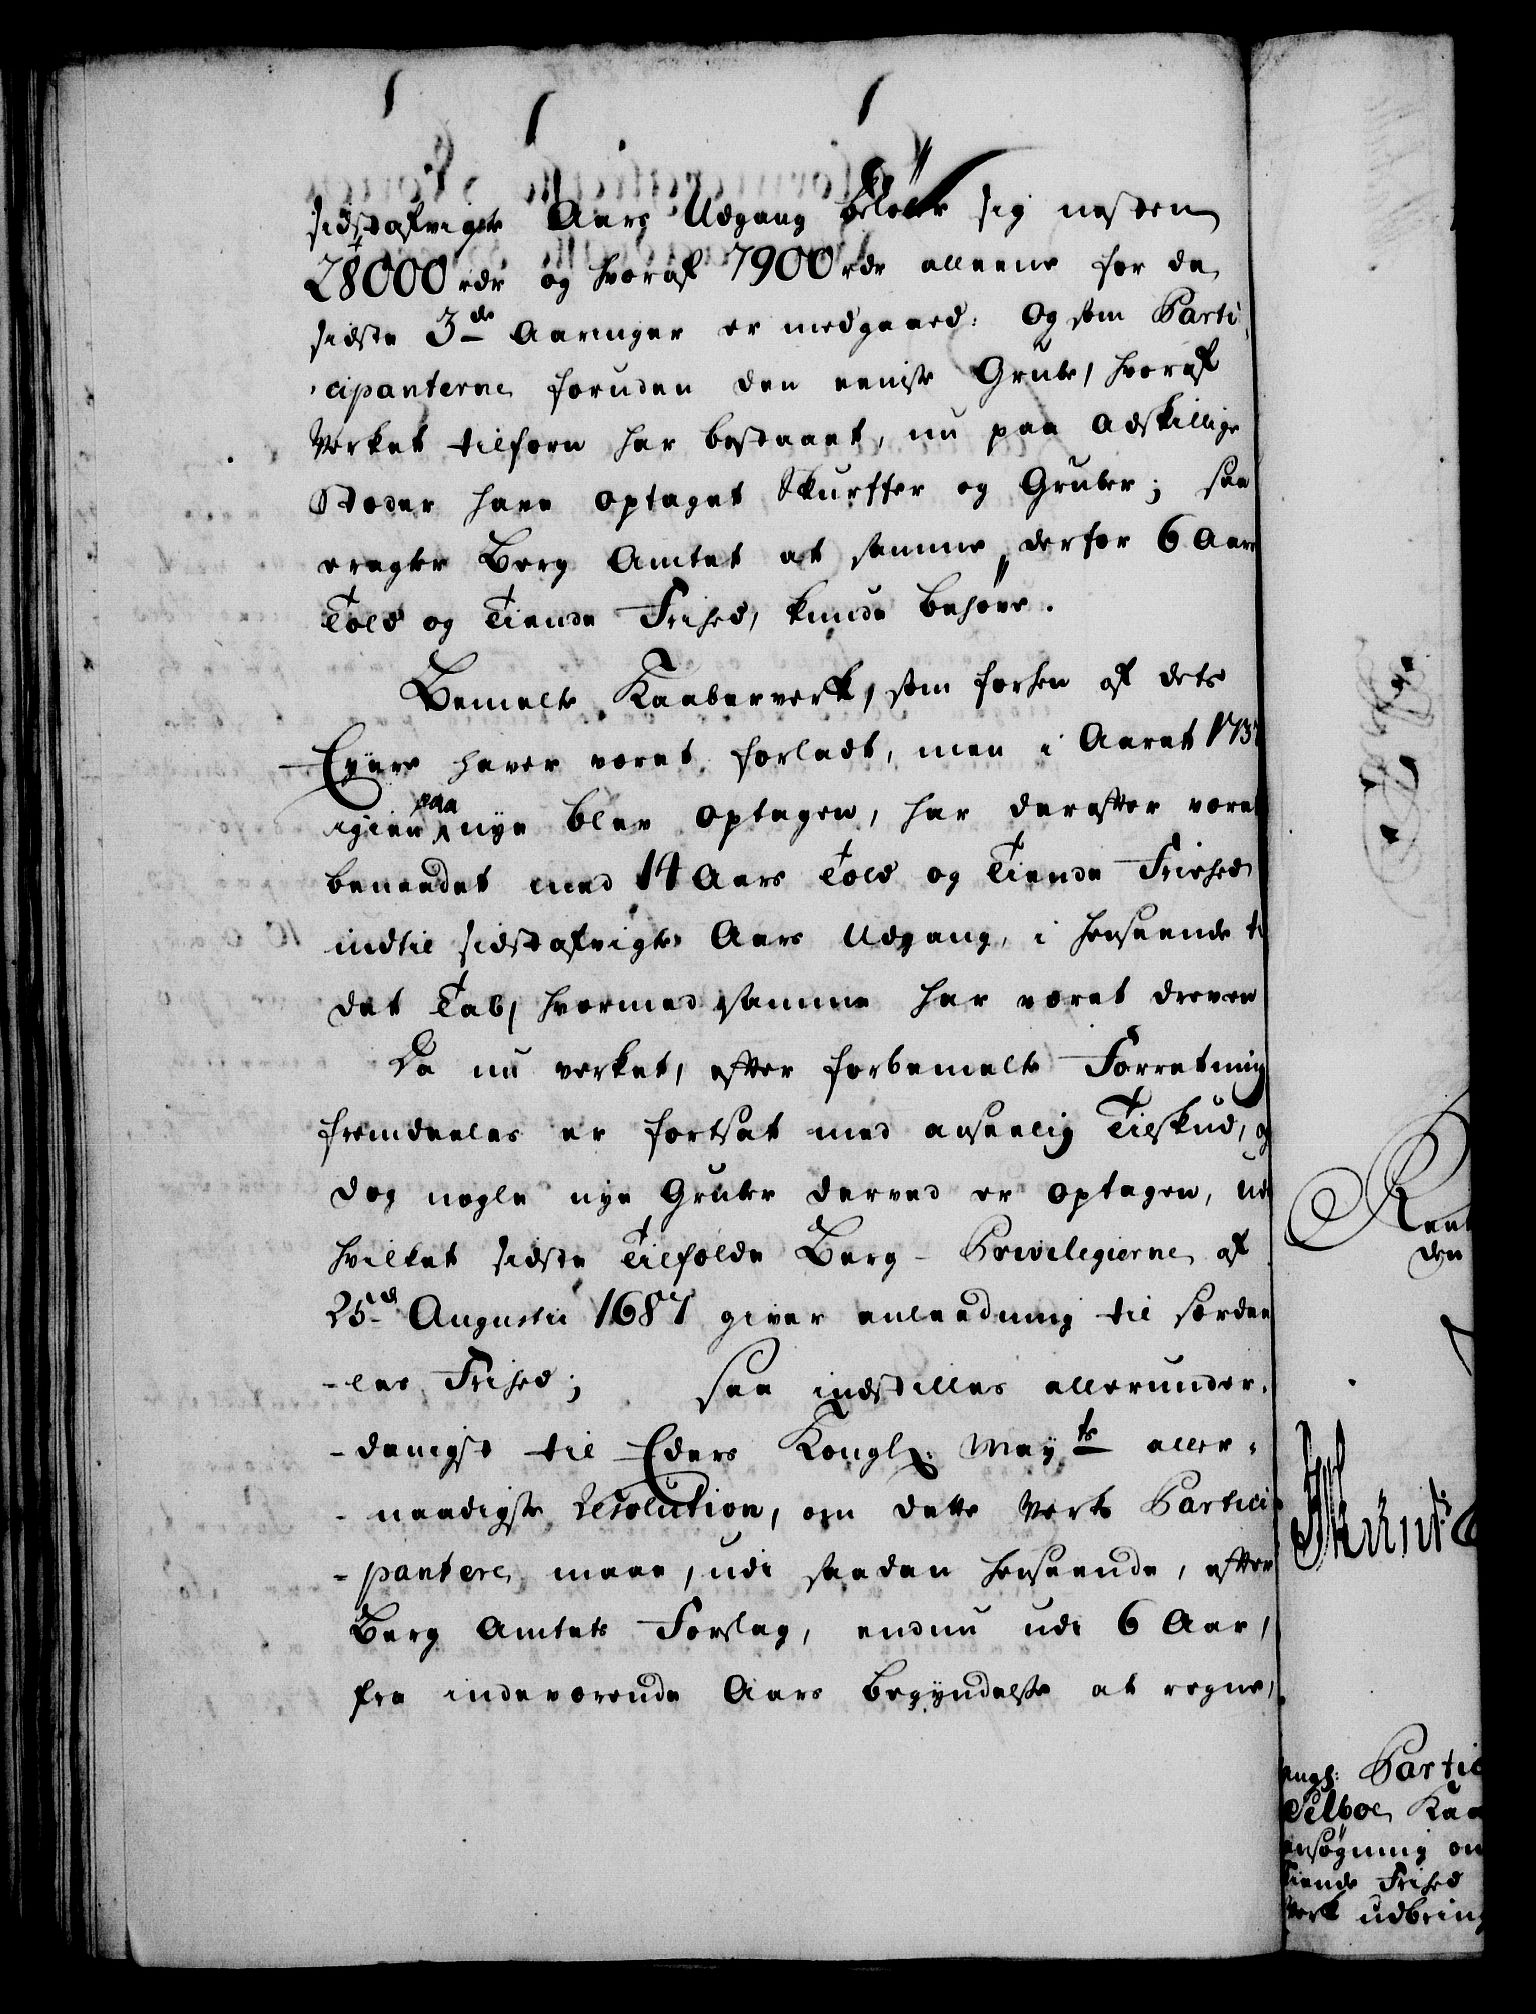 sidstafvigte Aars Udgang beløber sig næsten
28000 rdr og hvoraf 7900 rdr alleene for de
sidste 3de Aaringer er medgaaed: Og som Parti-
-cipanterne foruden den eeniste Grube, hvoraf
Verket tilforn har bestaaet, nu paa adskillige
Stæder have optaget Skurffer og Gruber; saa
eragter Berg Amtet at samme derfor 6 Aars
Told og Tiende Frihed, kunde behøve.
Bemelte Kaaberverk, som forhen af dets
Eyere haver været forladt, men i Aaret 1737
igien paa nye blev optagen, har derefter været
benaadet med 14 Aars Told og Tiende Friehed
indtil sidstafvigte Aars Udgang, i henseende til
det Tab, hvormed samme har været dreven
Da nu verket, efter forbemelte Forretning
fremdeeles er fortsat med anseelig Tilskud, og
dog nogle nye Gruber derved er optagen, udi
hvilket sidste Tilfælde Berg-Privilegierne af
25d Augusti 1687 giver anleedning til særdee
-les Frihed; Saa indstilles allerunder-
-danigst til Eders Kongl. May.ts aller-
-naadigste Resolution, om dette Verks Partici
-pantere maae, udi saadan henseende, efter
Berg Amtets Forslag, endnu udi 6 Aar,
fra indeværende Aars begyndelse at regne,
Rent
den
angl: Partic
Selboe Kaa
ansøgning om
Tiende Frihed
Verk udbring